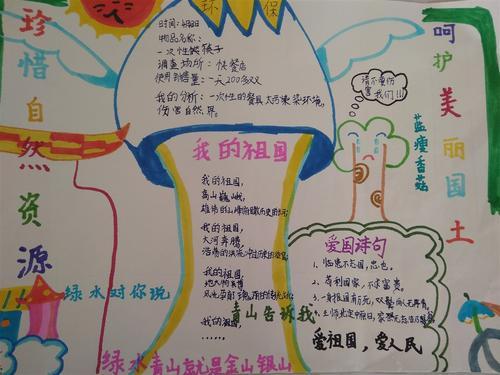 环保
珍惜自然资源
时间:
物品名称:
一次性筷子
调查场所:快餐店
使用数量:一天200多双
我的分析:一次性的餐具太污染环境,
伤害自然界。
请不要伤
害我们!!!
呵护美丽国土
蓝瘦香菇
我的祖国
我的祖国,
高山巍峨,
雄伟的山峰俯瞰历史的
我的祖国,
大河奔腾,
浩荡的洪流冲过历史的
我的祖国,
地大物博
我的祖国,
……
爱国诗句
1、临患不忘国,忠也。
2、苟利国家,不求富贵。
3、一身报国有万死,双鬓向人无再青。
4、
爱祖国,爱人民
绿水对你说
青山告诉我
绿水青山就是金山银山